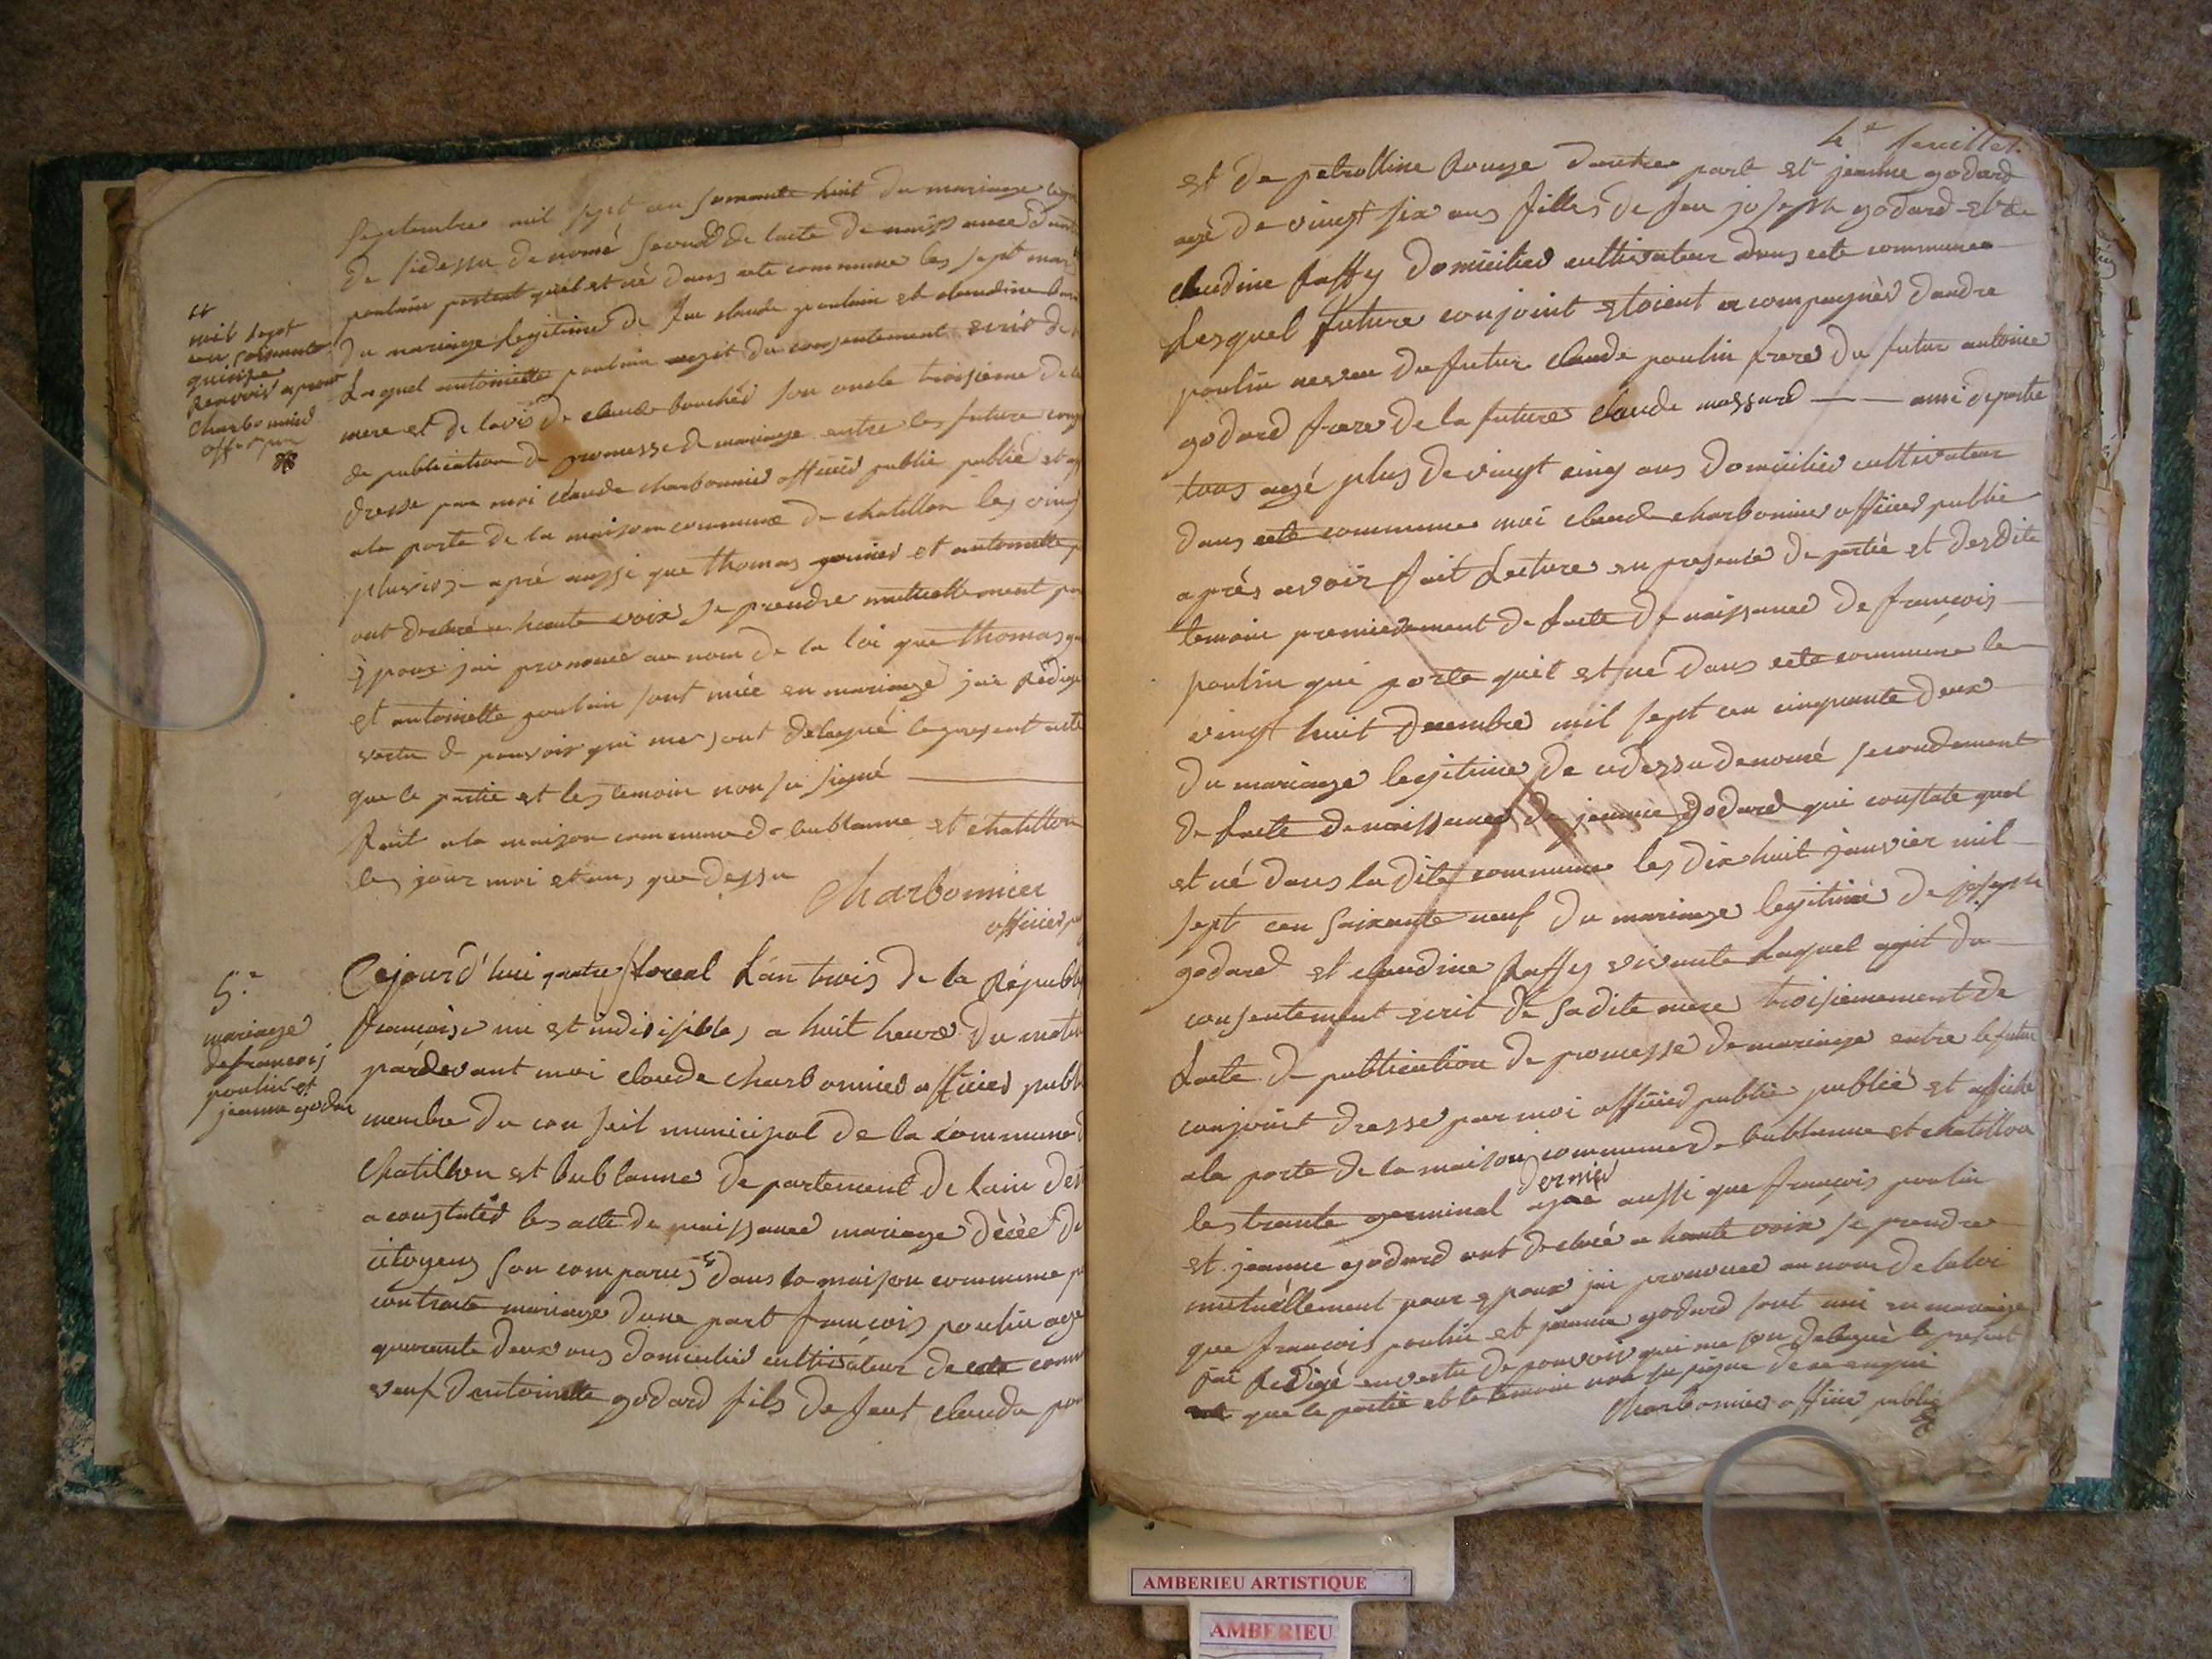 septembre mil sept cen soixante huit du mariage
de sidessu denomé second de lacte de naissance
poulain portent quel est né dans cete commune les sept mar
du mariage legitime de feu claude poulain et claudine
Laquel antoinette poulain agit du consentement ecrit de
mere et de lavis de claude bouchés son oncle troisieme de
de publication de promesse de mariage entre les future conj
dresse par moi claude charbonnier officier public publié et
a la porte de la maison commune de chatillon les ving
pluviose apré aussi que thomas et antoinette p
ont declaré a haute voix se prendre mutuellement po
Epoux jai prononcé au nom de la loi que thomas
et antoinette poulain sont unie en mariage jai Rédigé
vertu de pouvoir qui me sont delegué le present acte
que le partie et les temoin non su signé
fait a la maison commune de bublanne et chatillon
les jour moi et ans que dessu
Charbonnier
officier pu
mil sept
cen soixante
quinze
Renvois aprouv
Charbonnier
off
5e
mariage
de francois
poulin et
jeanne godar
Cejourd'hui quatre floreal Lan trois de la Républi
francoise une et indivisibles a huit heure du matin
pardevant moi claude charbonnier officier publi
membre du conseil municipal de la commune d
Chatillon et bublanne departement de lain
a constater les acte de naissance mariage décée de
citoyens son comparus dans la maison commune p
contracte mariage dune part francois poulin age
quarante deux ans domicilier cultivateur de cete comm
veuf dantoinette godard fils de feut claude pou
4e feuillet
et de petrolline Rouge dautre part et jeanne godard
agé de vingt six ans filles de feu joseph godard et de
claudine Raffy domicilier cultivateur dans cete commune
Lesquel future conjoint etoient acompagnés dandre
poulin neveu du futur claude poulin frere du futur antoine
godard frere de la future claude massard ami de partie
tous agé plus de vingt cinq ans domicilier cultivateur
dans cete commune moi claude charbonnier officier public
après avoir fait Lecture en presence de partie et desdite
temoin premierement de lacte de naissance de francois
poulin qui porte quil est né dans cete commune le
vingt huit decembre mil sept cen cinquante deux
du mariage legitime de cidessu denomé secondement
de lacte de naissance de jeanne Godard qui constate quel
et né dans ladite commune les dix huit janvier mil
sept cen soixante neuf du mariage legitime de joseph
godard et claudine Raffy vivante Laquel agit du
consentement ecrit de sadite mere troisiemement de
Lacte de publication de promesse de mariage entre le futur
conjoint dresse par moi officier public publié et affiché
a la porte de la maison commune de bublanne et chatillon
dernier
les trante germinal apré aussi que francois poulin
et jeanne godard ont declaré a haute voix se prendre
mutuéllement pour epoux jai prononcé au nom de la loi
que francois poulin et jeanne godard sont uni en mariage
jai Redigé en vertu de pouvoir qui me son delegué le present
que le partie et le temoin non su signe de ce enquis
Charbonnier officier public
AMBERIEU ARTISTIQUE
AMBERIEU